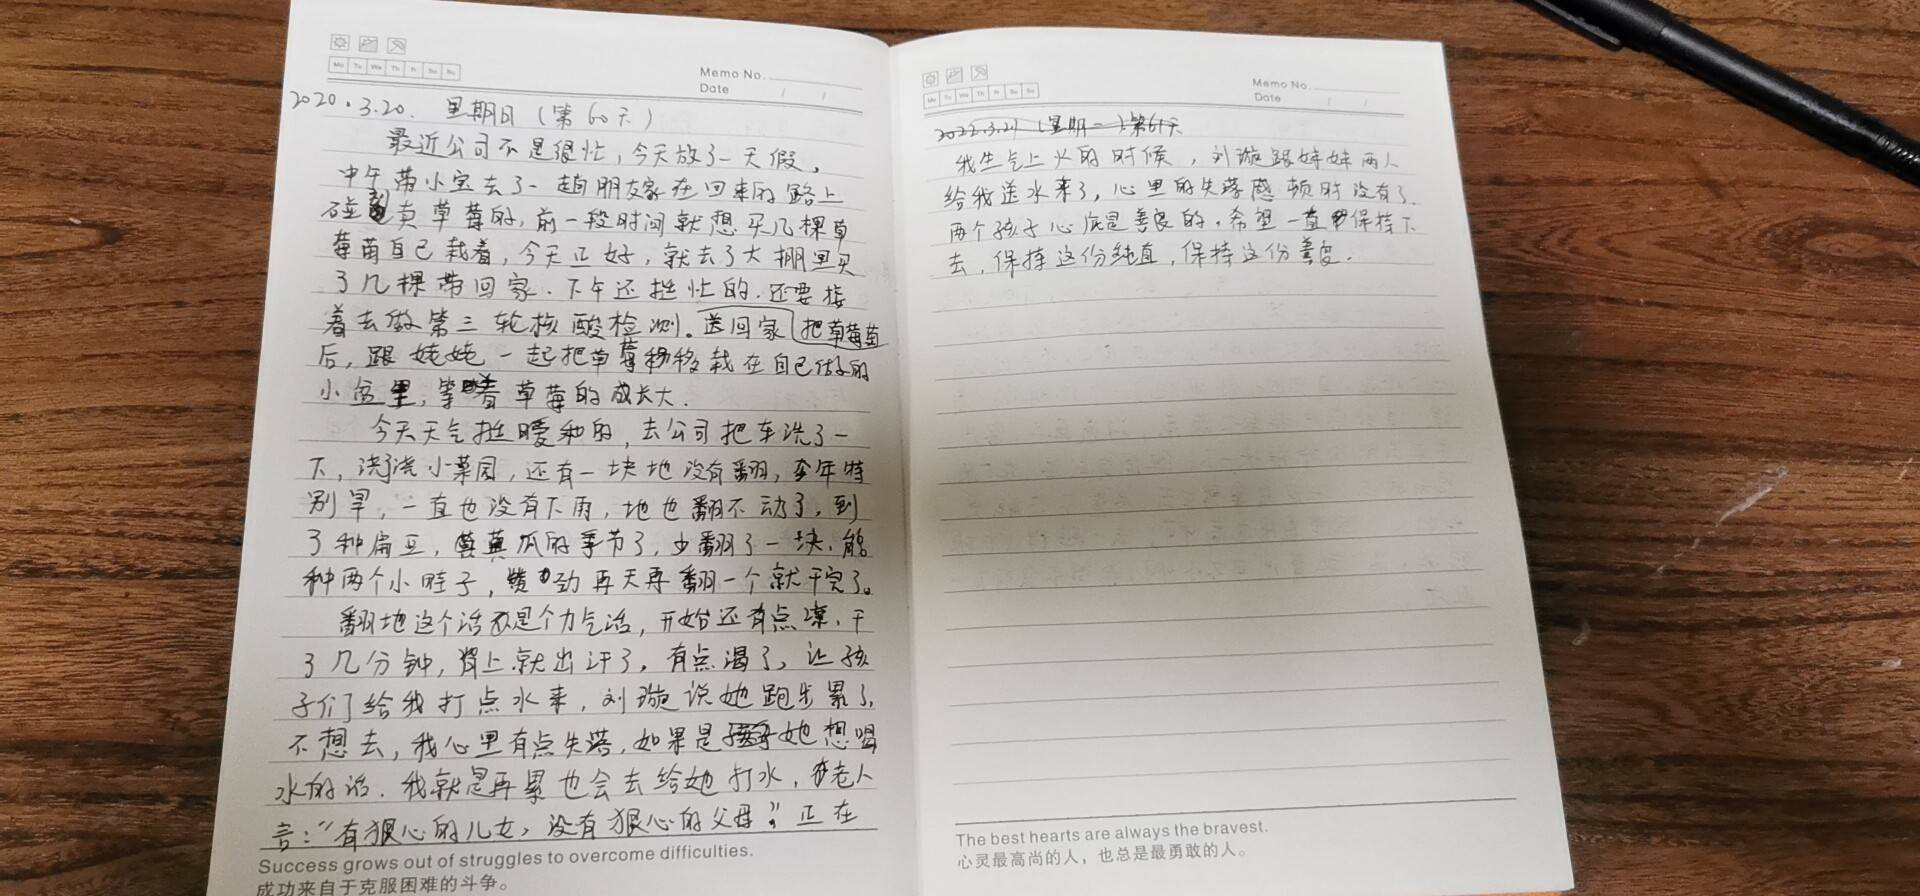 Mo Tu We Th Fr Sa Su
Memo No.
Date / /
2020.3.20. 星期日（第60天）
最近公司不是很忙，今天放了一天假，
中午带小宝去了一趟朋友家在回来的路上
碰到卖草莓的，前一段时间就想买几棵草
莓苗自己栽着，今天正好，就去了大棚里买
了几棵带回家．下午还挺忙的．还要接
着去做第三轮核酸检测。送回家把草莓苗
后，跟姥姥一起把草莓移栽在自己做的
小盆里，等着草莓的成长大．
今天天气挺暖和的，去公司把车洗了一
下，浇浇小菜园，还有一块地没有翻，今年特
别旱，一直也没有下雨，地也翻不动了，到
了种扁豆，黄瓜的季节了，也翻了一块，能
种两个小畦子，再天再翻一个就干完了。
翻地这个活是个力气活，开始还有点凉，干
了几分钟，背上就出汗了，有点渴了，让孩
子们给我打点水来，刘璇说她跑步累了，
不想去，我心里有点失落，如果是她想喝
水的话．我就是再累也会去给她打水，老人
言：“有狠心的儿女，没有狠心的父母”，正在
Success grows out of struggles to overcome difficulties.
成功来自于克服困难的斗争。
Mo Tu We Th Fr Sa Su
Memo No.
Date / /
2022.3.21（星期一）第61天
我生气上火的时候，刘璇跟妹妹两人
给我送水来了，心里的失落感顿时没有了．
两个孩子心底是善良的．希望一直保持下
去，保持这份纯真，保持这份善良．
The best hearts are always the bravest.
心灵最高尚的人，也总是最勇敢的人。